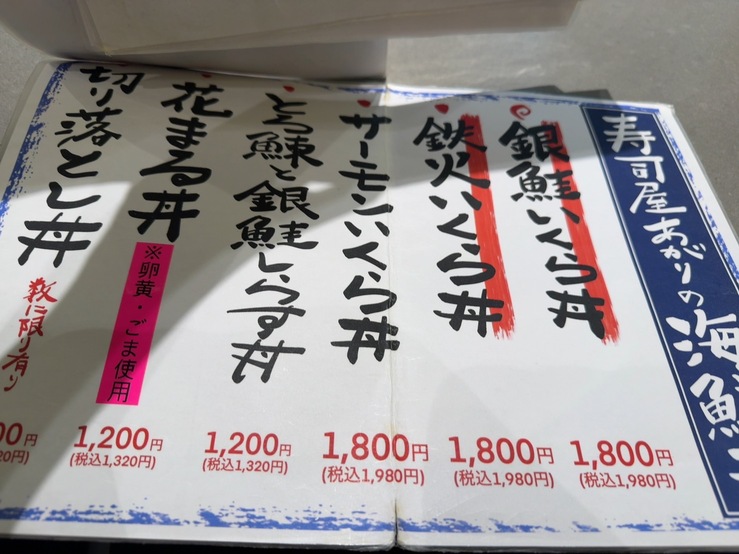 寿司屋あがりの海鮮
銀鮭いくら丼
1,800円
(税込1,980円)
鉄火いくら丼
1,800円
(税込1,980円)
サーモンいくら丼
1,800円
(税込1,980円)
とろ鰊と銀鮭しらす丼
1,200円
(税込1,320円)
花まる丼
※卵黄・ごま使用
1,200円
(税込1,320円)
切り落とし丼
数に限り有り
00円
20円)